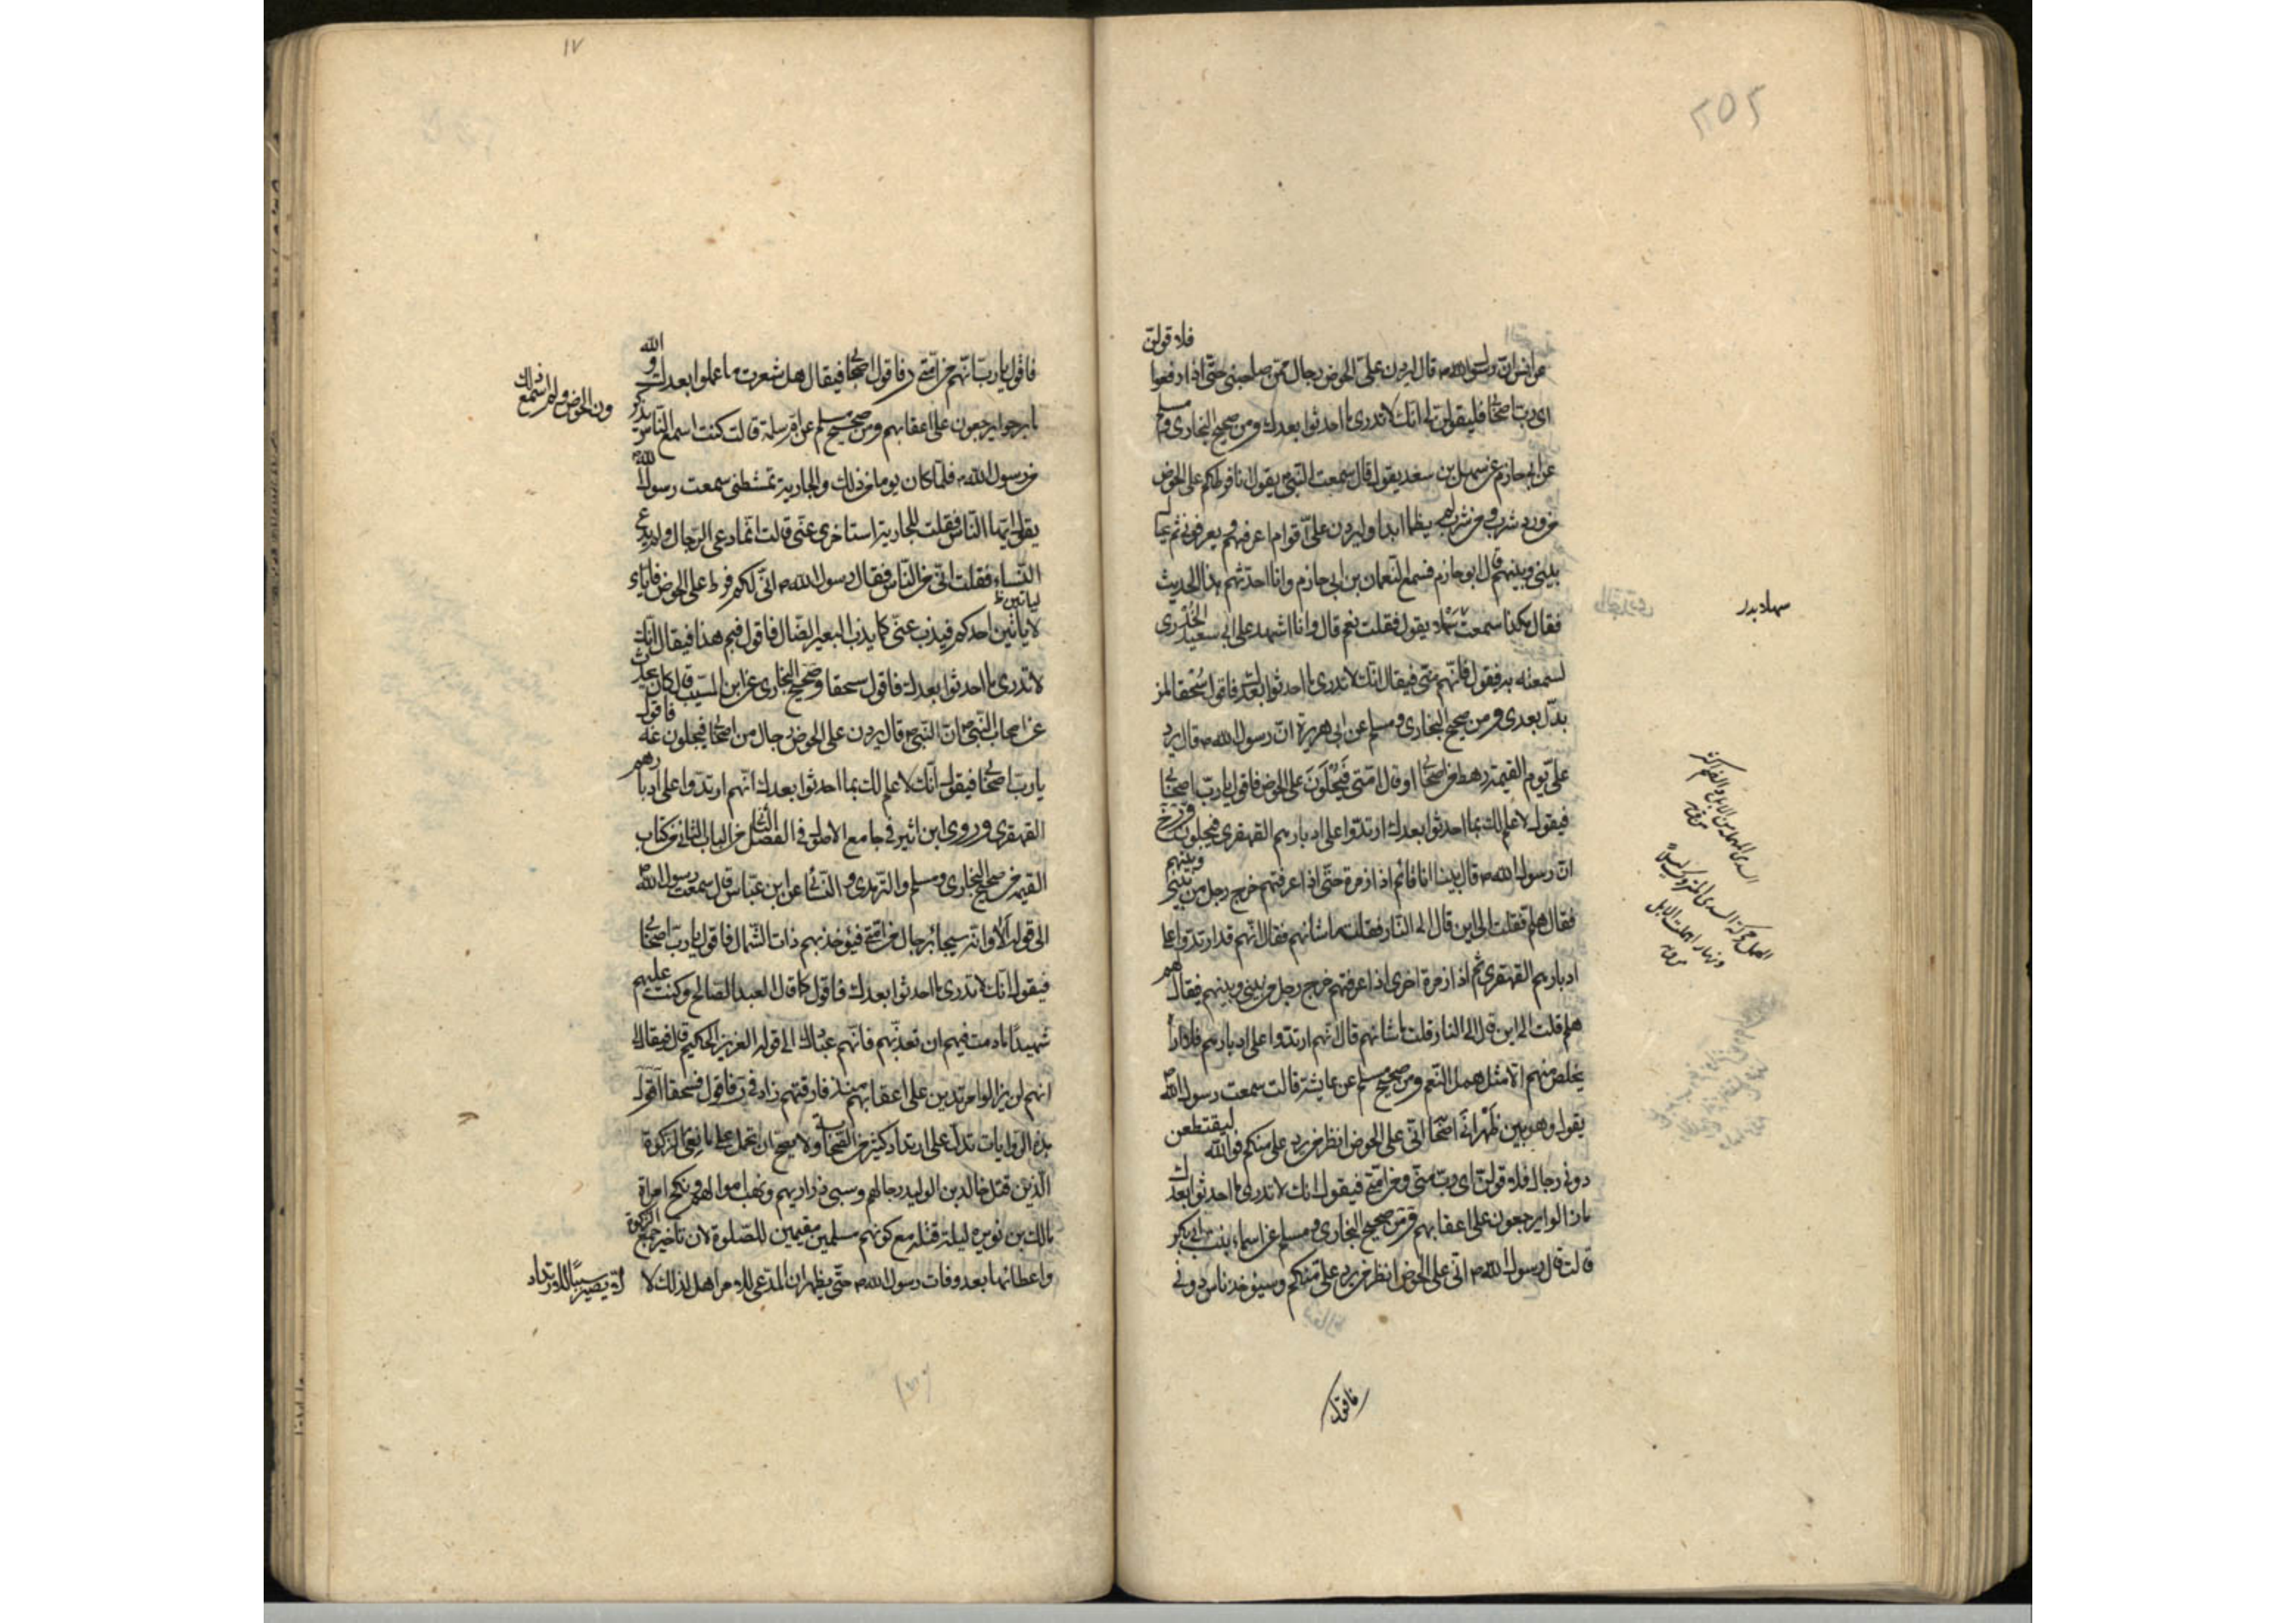 ٢٥٢
عن انس ان رسول الله ص قال ليردن على الحوض رجال ممن صاحبنى حتى اذا رفعوا فلاقولن
اى رب اصحابى فليقولن لى انك لا تدرى ما احدثوا بعدك ومن صحيح البخارى ومسلم
عن ابى حازم عن سهل بن سعد يقول قال سمعت النبى ص يقول انا فرطكم على الحوض
من ورد شرب ومن شرب لم يظما ابدا وليردن على اقوام اعرفهم ويعرفونى ثم يحال
بينى وبينهم قال ابو حازم فسمع النعمان بن ابى حازم وانا احدثهم هذا الحديث
فقال هكذا سمعت سهلا يقول فقلت نعم قال وانا اشهد على ابى سعيد الخدرى
لسمعته يزيد فيقول فانهم منى فيقال انك لا تدرى ما احدثوا بعدك فاقول سحقا لمن
بدل بعدى ومن صحيح البخارى ومسلم عن ابى هريرة ان رسول الله ص قال يرد
على يوم القيمة رهط من اصحابى او قال امتى فيجلون على الحوض فاقول يا رب اصحابى
فيقول لا علم لك بما احدثوا بعدك ارتدوا على ادبارهم القهقرى فيجلون
ان رسول الله ص قال بينا انا قائم اذا زمرة حتى اذا عرفتهم خرج رجل من بينى وبينهم
فقال هلم فقلت الى اين قال الى النار فقلت ما شانهم فقال انهم قد ارتدوا على
ادبارهم القهقرى ثم اذا زمرة اخرى اذا عرفتهم خرج رجل من بينى وبينهم فقال
هلم قلت الى اين قال الى النار قلت ما شانهم قال انهم ارتدوا على ادبارهم فلا اراه
يخلص منهم الا مثل همل النعم ومن صحيح مسلم عن عايشة قالت سمعت رسول الله ص
يقول وهو بين ظهرانى اصحابه انى على الحوض انظر من يرد على منكم فوالله ليقتطعن
دونى رجال فلاقولن اى رب منى ومن امتى فيقول انك لا تدرى ما احدثوا بعدك
ما زالوا يرجعون على اعقابهم ومن صحيح البخارى ومسلم عن اسماء بنت ابى بكر
قالت قال رسول الله ص انى على الحوض انظر من يرد على منكم وسيؤخذ ناس دونى
فاقول
١٧
فاقول يا رب انهم من امتى و فاقول اصحابى فيقال هل شعرت ما عملوا بعدك والله
ما برحوا يرجعون على اعقابهم ومن صحيح مسلم عن ام سلمة قالت كنت اسمع الناس يذكرون الحوض ولم اسمع ذلك
من رسول الله ص فلما كان يوما من ذلك والجارية تمشطنى سمعت رسول الله ص
يقول ايها الناس فقلت للجارية استاخرى عنى قالت انما دعى الرجال ولم يدع
النساء فقلت انى من الناس فقال رسول الله ص انى لكم فرط على الحوض فاياى
لا ياتين احدكم فيذب عنى كما يذب البعير الضال فاقول فيم هذا فيقال انك
لا تدرى ما احدثوا بعدك فاقول سحقا وصحيح البخارى عن ابن المسيب قال كان يحدث
عن اصحاب النبى ص ان النبى ص قال يردن على الحوض رجال من اصحابى فيحلون عنه فاقول
يا رب اصحابى فيقول انك لا علم لك بما احدثوا بعدك انهم ارتدوا على ادبارهم
القهقرى وروى ابن اثير فى جامع الاصول فى الفصل الثانى من الباب الثانى من كتاب
القيمة من صحيح البخارى ومسلم والترمذى والنسائى عن ابن عباس قال سمعت رسول الله ص
الى قوله الا وانه سيجاء برجال من امتى فيؤخذ بهم ذات الشمال فاقول يا رب اصحابى
فيقول انك لا تدرى ما احدثوا بعدك فاقول كما قال العبد الصالح وكنت عليهم
شهيدا ما دمت فيهم ان تعذبهم فانهم عبادك الى قوله العزيز الحكيم قال فيقال لى
انهم لن يزالوا مرتدين على اعقابهم منذ فارقتهم زاد فى ر فاقول فسحقا اقول
هذه الروايات تدل على ارتداد كثير من الصحابة ولا يصح ان تحمل على مانعى الزكوة
الذين قتل خالد بن الوليد رجالهم وسبى ذراريهم ونهب اموالهم ونكح امراة
مالك بن نويره ليلة قتله مع كونهم مسلمين مقيمين للصلوة لان تاخير جمع الزكوة
واعطائها بعد وفات رسول الله ص حتى يظهر ان المدعى له من اهل لذلك لا يصير سببا للارتداد